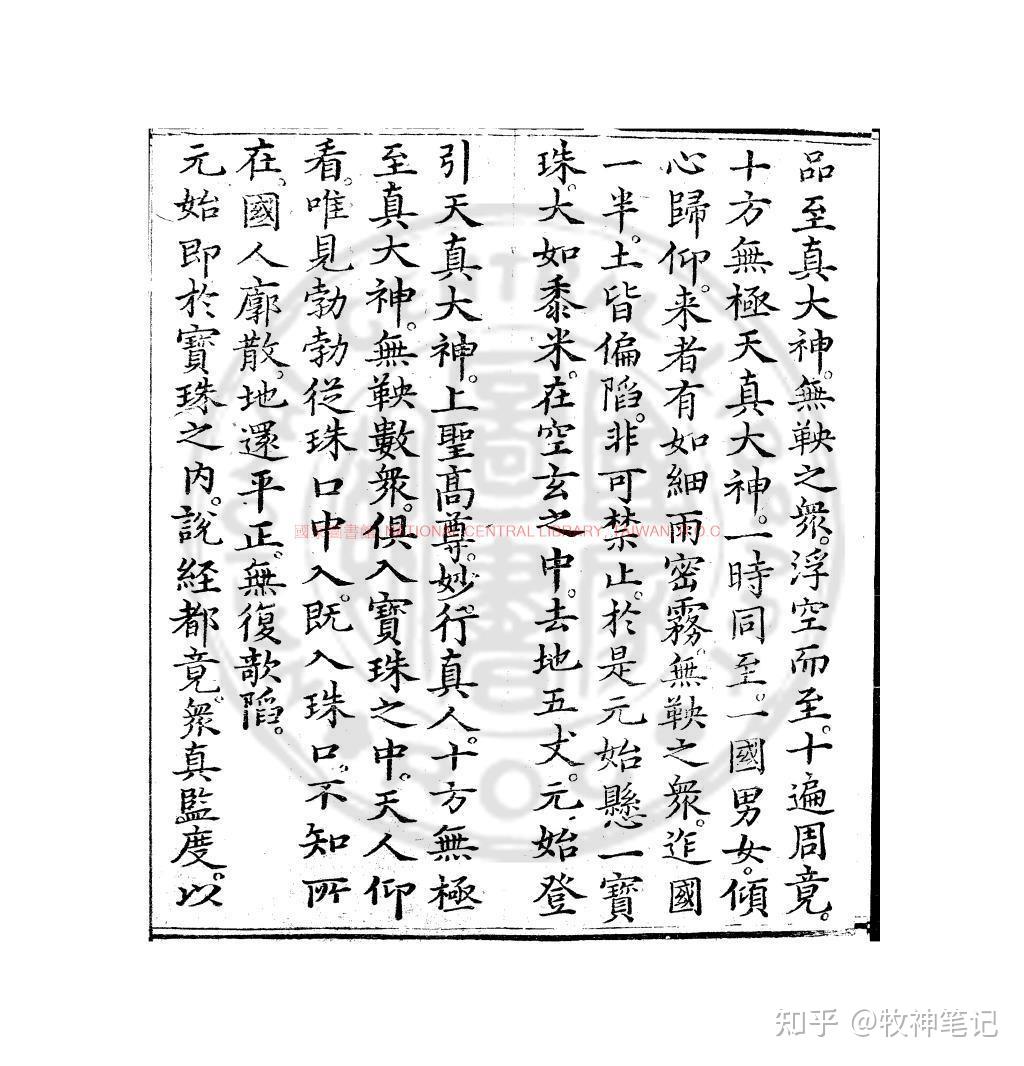 品至真大神。無鞅之衆。浮空而至。十遍周竟。
十方無極天真大神。一時同至。一國男女。傾
心歸仰。来者有如細雨密霧。無鞅之衆。迮國
一半。土皆偏陷。非可禁止。於是元始懸一寶
珠。大如黍米。在空玄之中。去地五丈。元始登
引天真大神。上聖高尊。妙行真人。十方無極
至真大神。無鞅數衆。俱入寶珠之中。天人仰
看。唯見勃勃從珠口中入。既入珠口。不知所
在。國人廓散。地還平正。無復欹陷。
元始即於寶珠之内。說經都竟。衆真監度。以
國家圖書館 NATIONAL CENTRAL LIBRARY, TAIWAN R.O.C
知乎 @牧神笔记